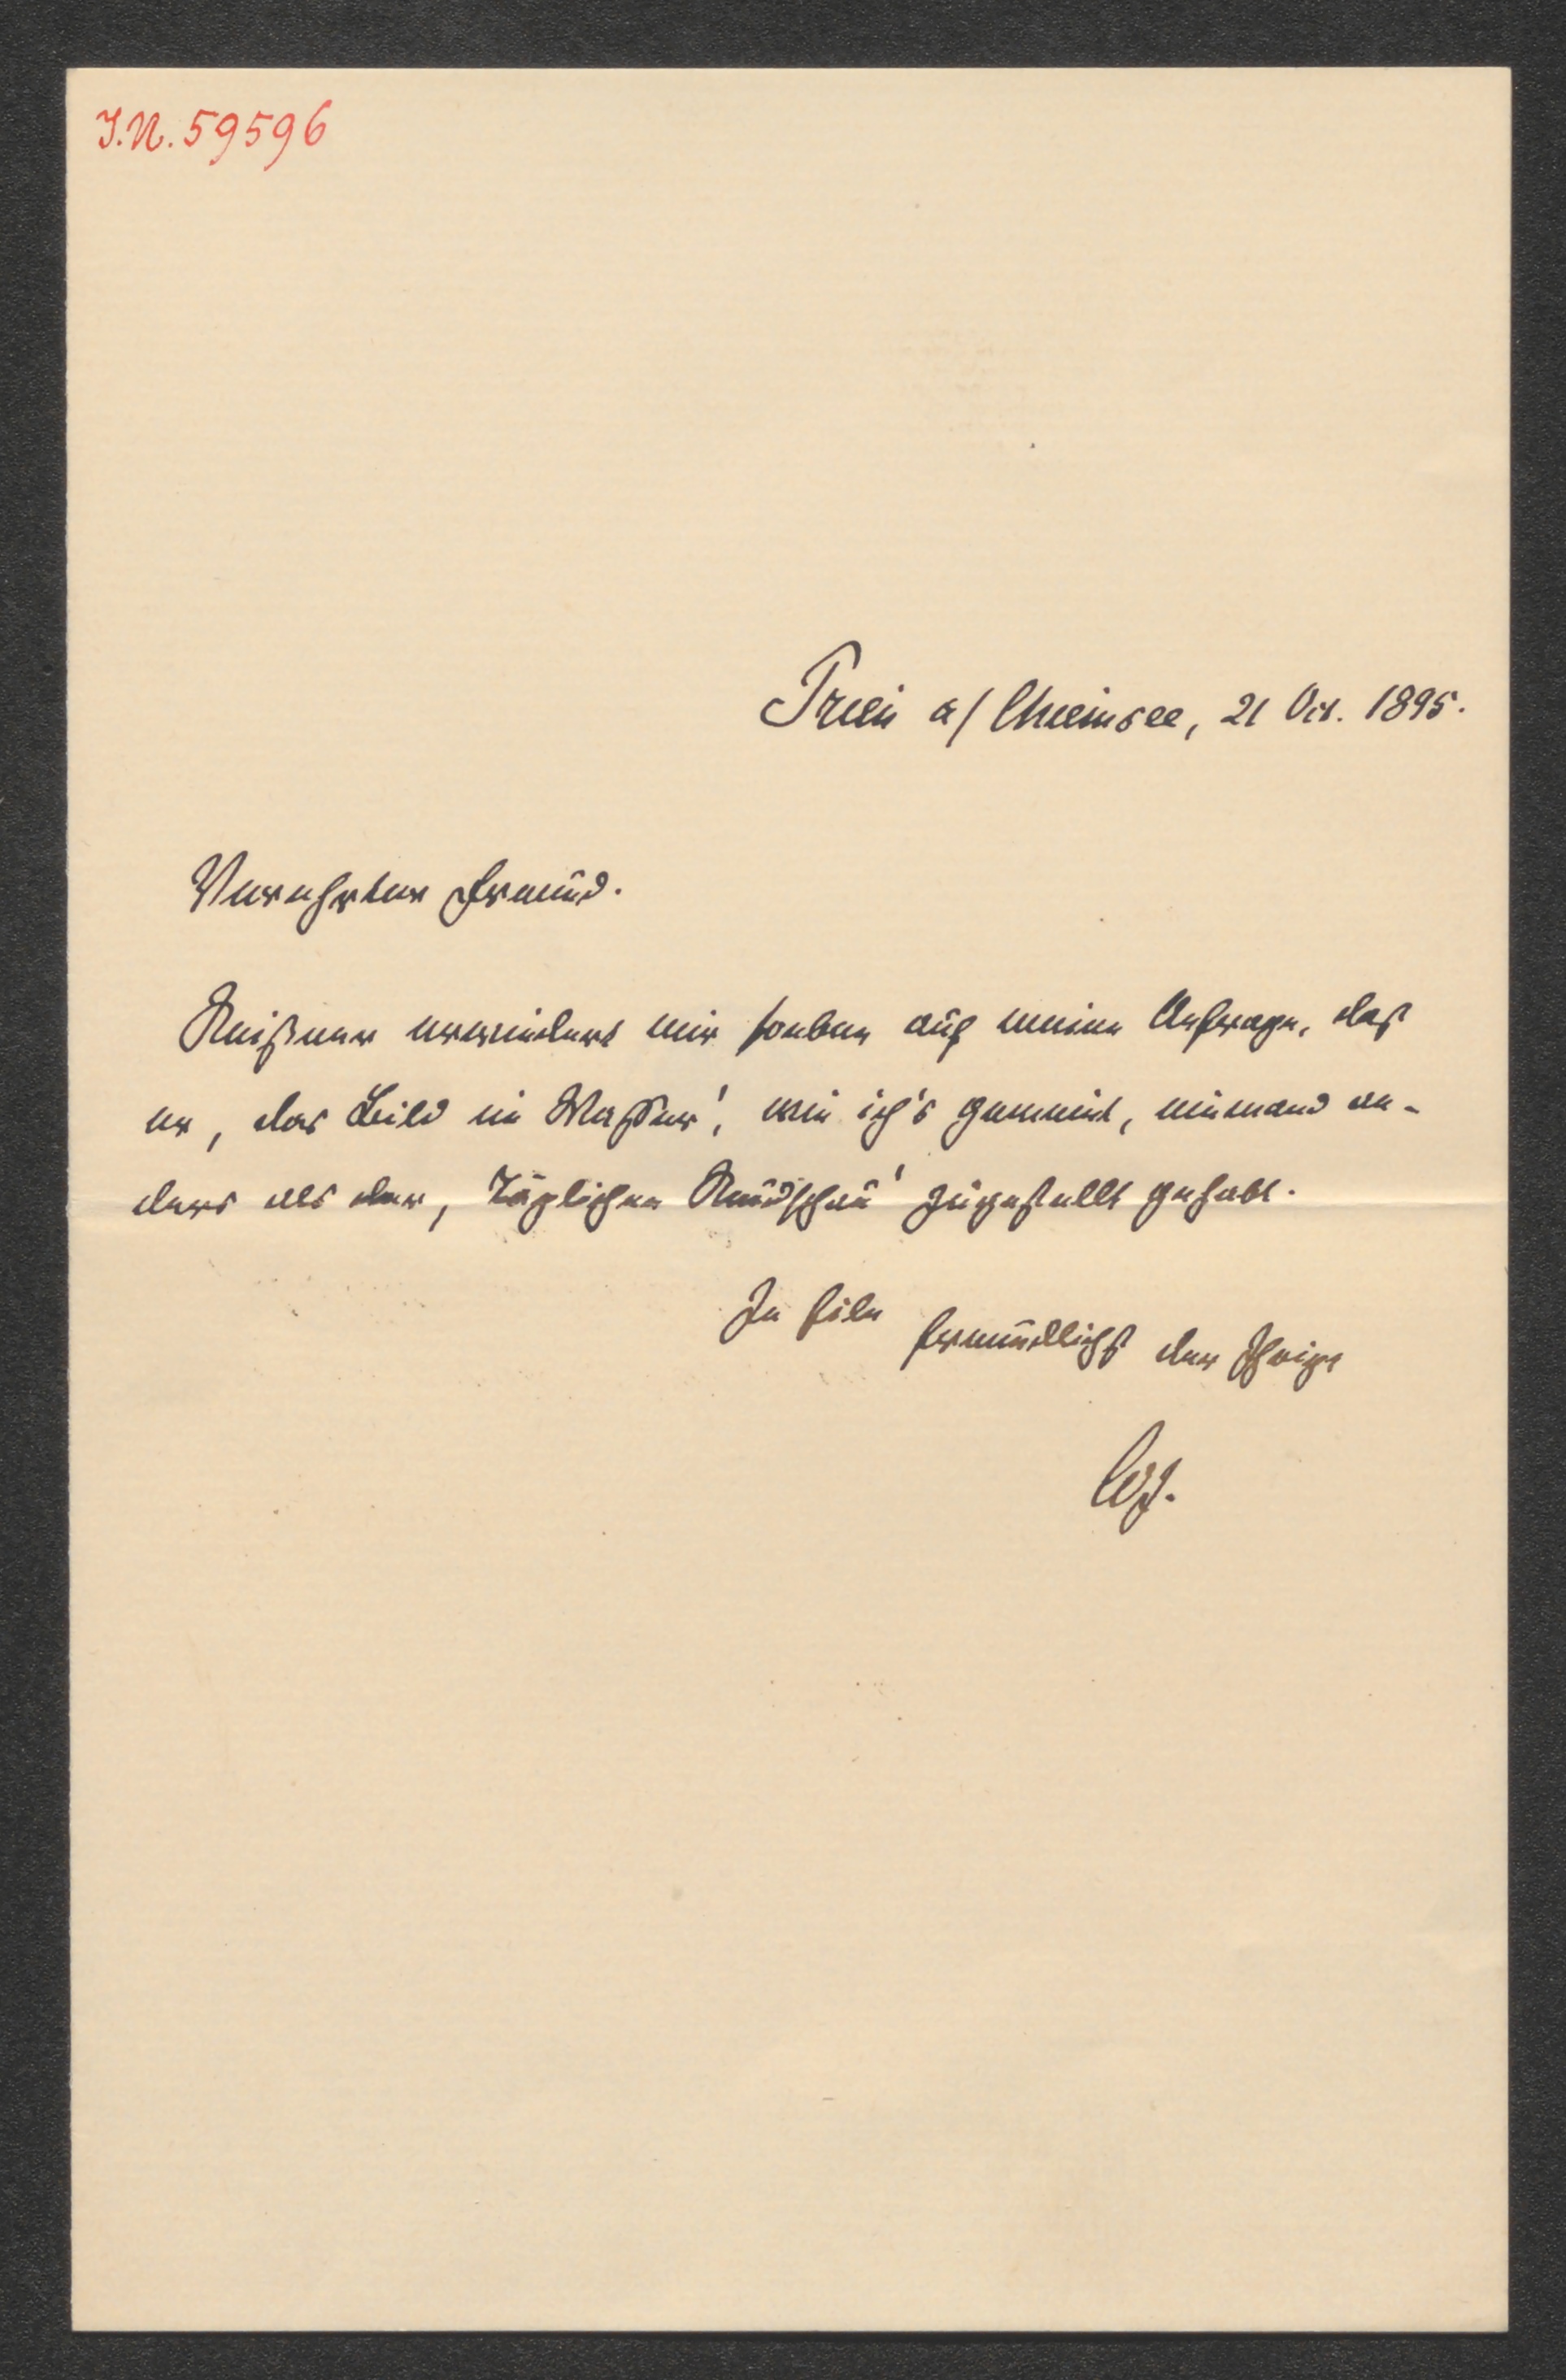 J.N. 59596
Prien a/ Chiemsee, 21 Oct. 1895.
Verehrter Freund.
Reißner erwiedert mir soeben auf meine Anfrage, daß
er, das Bild im Wasser', wie ich's gemeint, niemand an-
ders als der, Täglichen Rundschau' zugestellt gehabt.
In Eile freundlichst der Ihrige